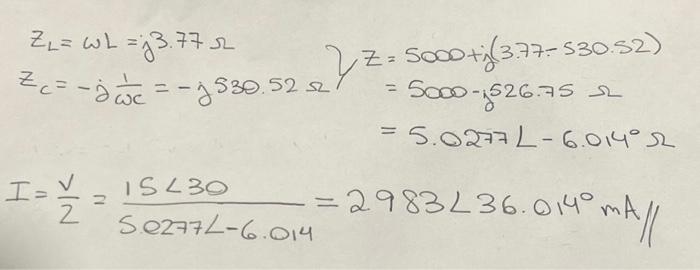 Z_L = ωL = j3.77 Ω
Z_C = -j 1/ωC = -j530.52 Ω
} Z = 5000 + j(3.77 - 530.52)
= 5000 - j526.75 Ω
= 5.0277∠-6.014° Ω
I = V/Z = 15∠30 / 5.0277∠-6.014 = 2983∠36.014° mA //